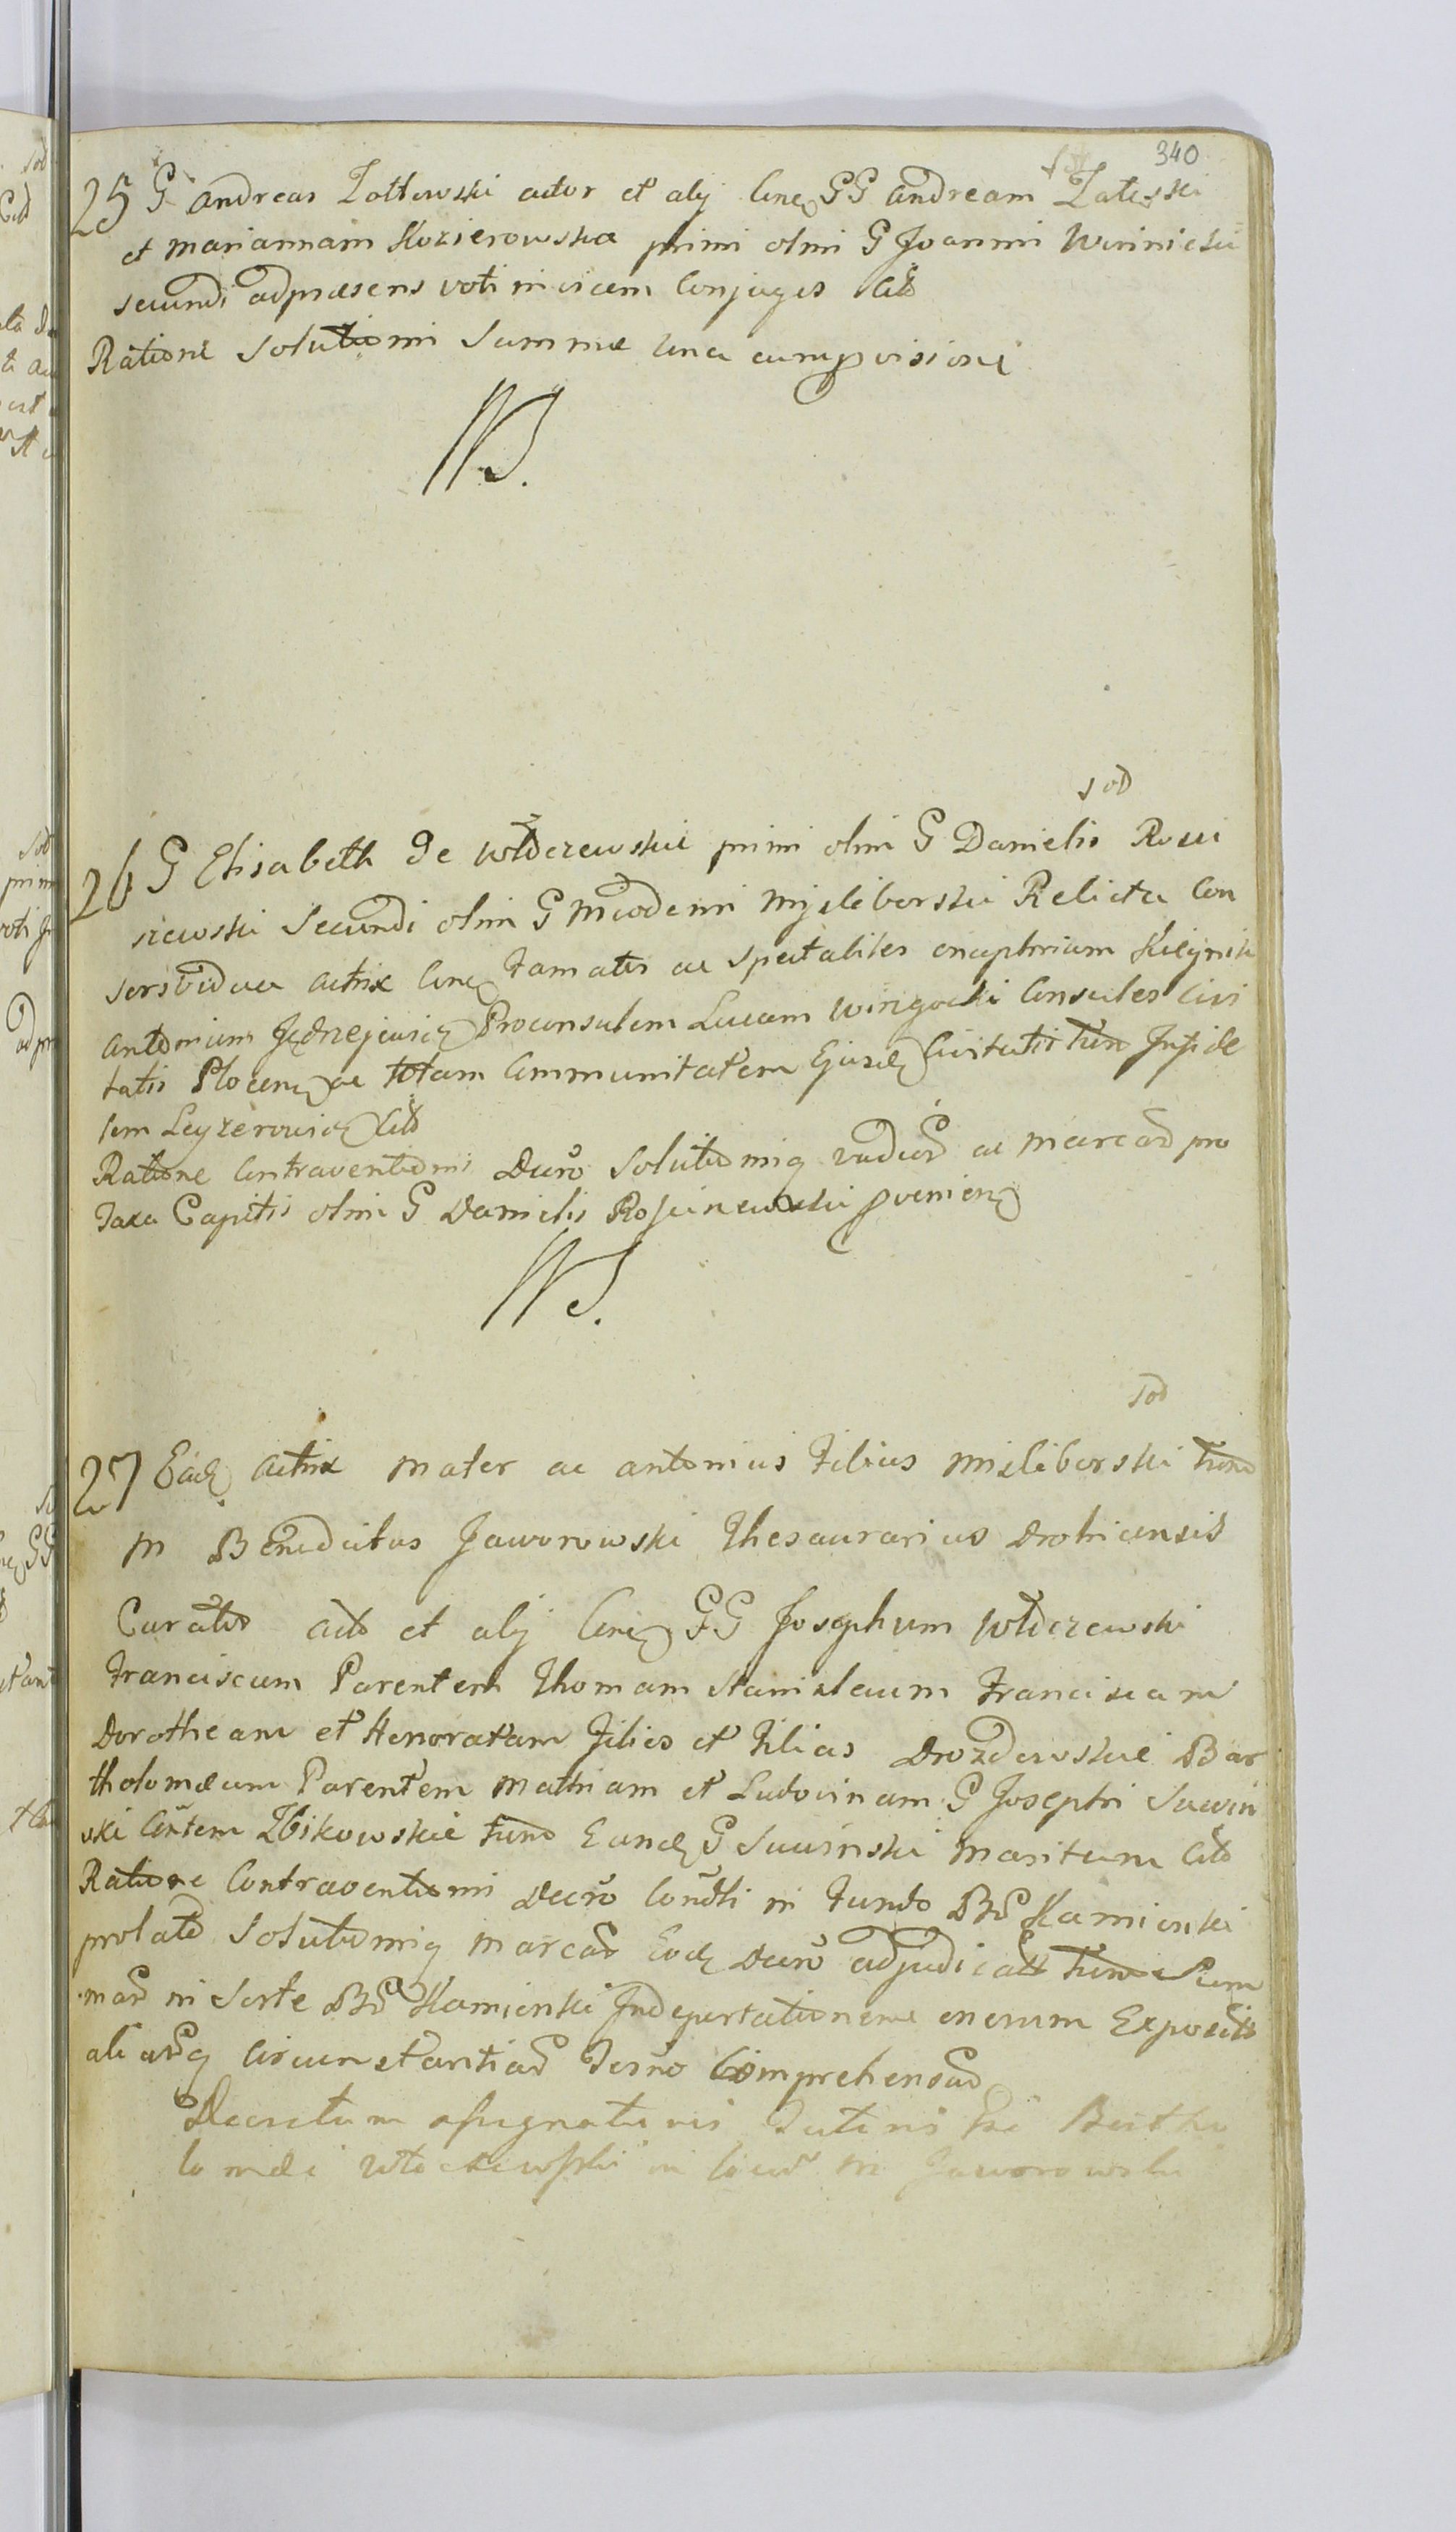 340
25 G Andreas Zottowski actor et alij Cnc GG Andream Zaleski
et Mariannam Kozierowska primi olim G Joanni Winnicki
secundi ad præsens voti invicem Conjuges Citt
Ratione Solutionis Summæ una cum provisione
sod
26 G Elisabeth de Włoczewskie primi olim G Danielis Rosci
szewski Secundi olim G Nicodemi Mysleborski Relicta Con
sors vidua Actrix Cnc Famatos ac Spectabiles
Antonium Jędrzejewicz Proconsulem Lucam Consules Civi
tatis Plocen ac totam Communitatem Ejusd Civitatis tum Infide
lem Leyzerowicz Citt
Ratione Contraventionis Decro Solutionisq ac marcar pro
Taxa Capitis olim G Danielis Roscisewski provenien
sod
27 Ead Actrix Mater ac Antonius Filius Misliborski tum
M Benedictus Jaworowski Thesaurarius Drohicensis
Curator acto et alij Cnc GG Josephum Włoczewski
Franciscum Parentem Thomam Stanislaum Franciscam
Dorotheam et Honoratam Filios et Filias Drozdowskie Bar
tholomæum Parentem Mathiam et Ludovinam G Josephi Suwin
ski Cortem Zbikowskie tum Eund G Suwinski Maritum Citt
Ratione Contraventionis Decro Condli in Fundo Bor Kamienski
prolato Solutionisq marcar Eod Decro adjudicatt tum Sum
mar in Sorte Bor Kamienski In deportationem onerum Exposit
aliarq Circumstantiar Termo Comprehensar
Decretum Bartho
lomæi Włoczewski in M Jaworowski